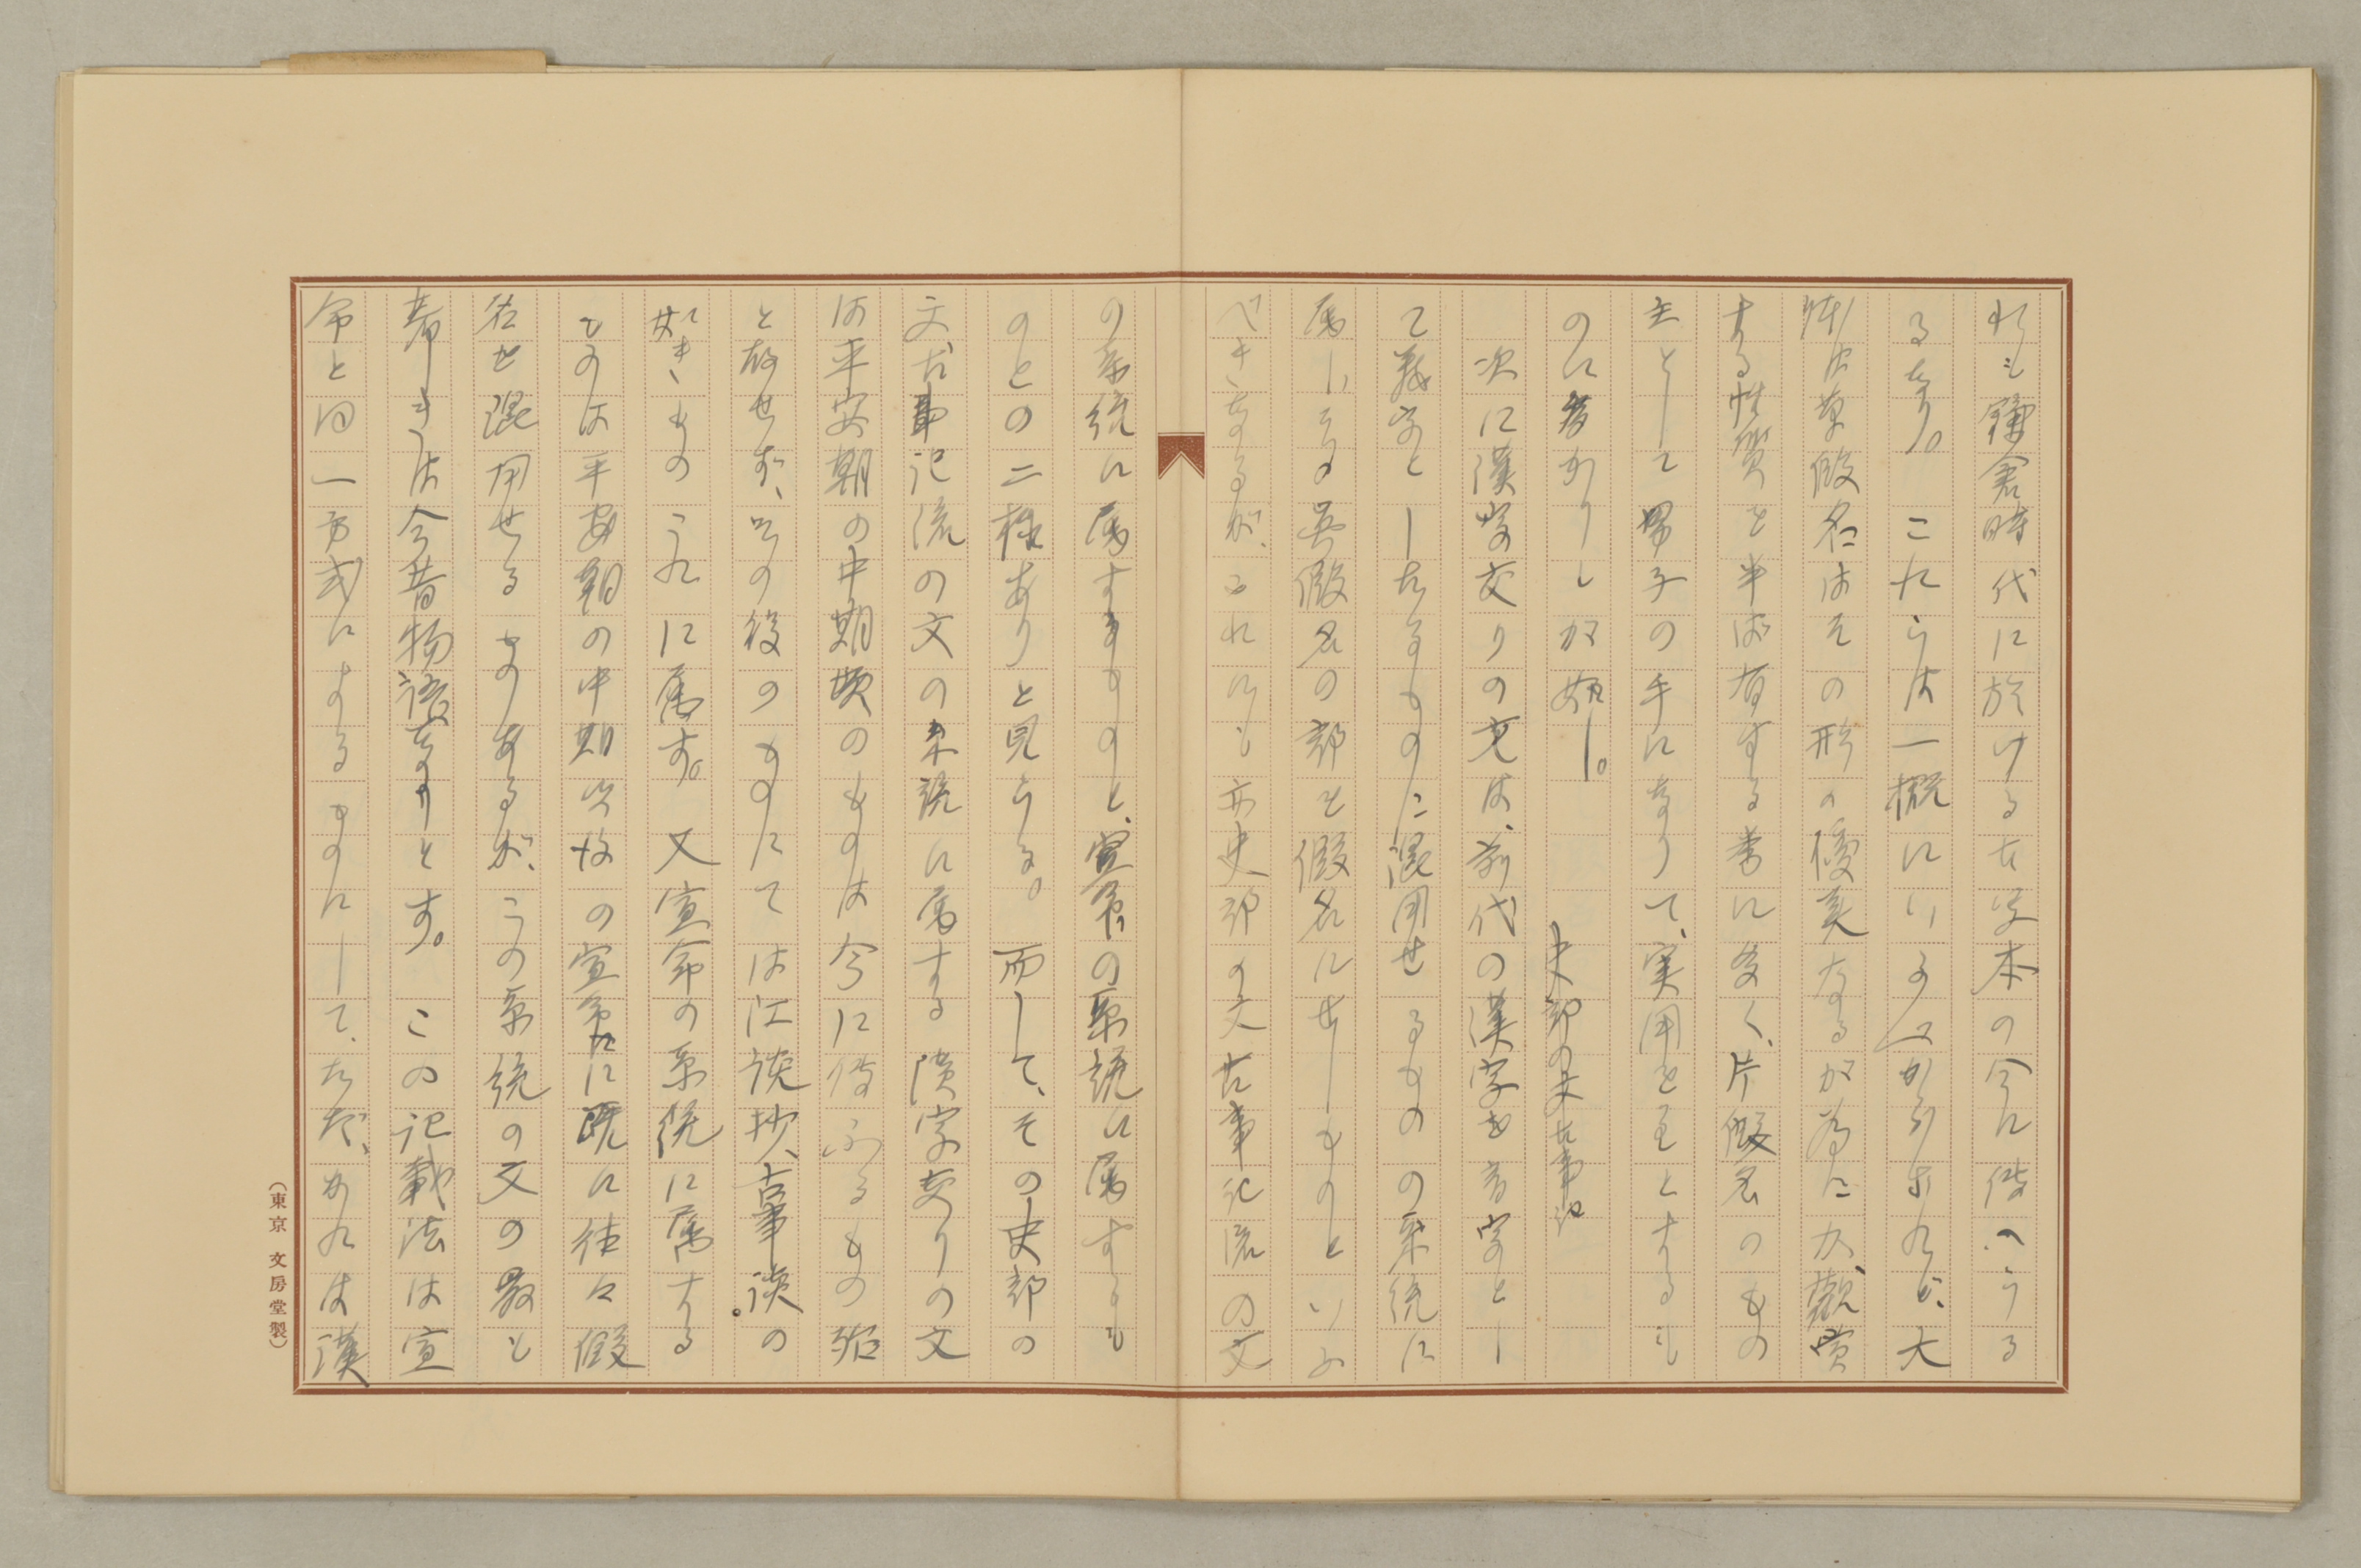 れも鎌倉時代に於ける古写本の今に伝へうる
るなり。これらは一概にいふべからざれど、大
体は草仮名はその形の優美なるが為に、観賞
する性質を半ば有する書に多く、片仮名のもの
主として男子の手になりて、実用を主とするも
のに多かりしが如し。
史部の文古事記
次に漢字交りの文は、前代の漢字を音字とし
て義字としたるものに混用せるものの系統に
属しうる
仮名の部を仮名にせしものといふ
べきなるが、これにも亦史部の文古事記流の文
の系統に属するものと、宣命の系統に属するも
のとの二様ありと見らる。而して、その史部の
文、古事記流の文の系統に属する漢字交りの文
は平安朝の中期頃のものは今に伝ふるもの殆
と存せず、その後のものにては江談抄、古事談の
如きものこれに属す。又宣命の系統に属する
ものは平安朝の中期以後の宣命に既に往々仮
名を混用せるものあるが、この系統の文の最も
著しきは今昔物語なりとす。この記載法は宣
命と同一方式にするものにして、ただ、かれは漢
（東京 文房堂製）